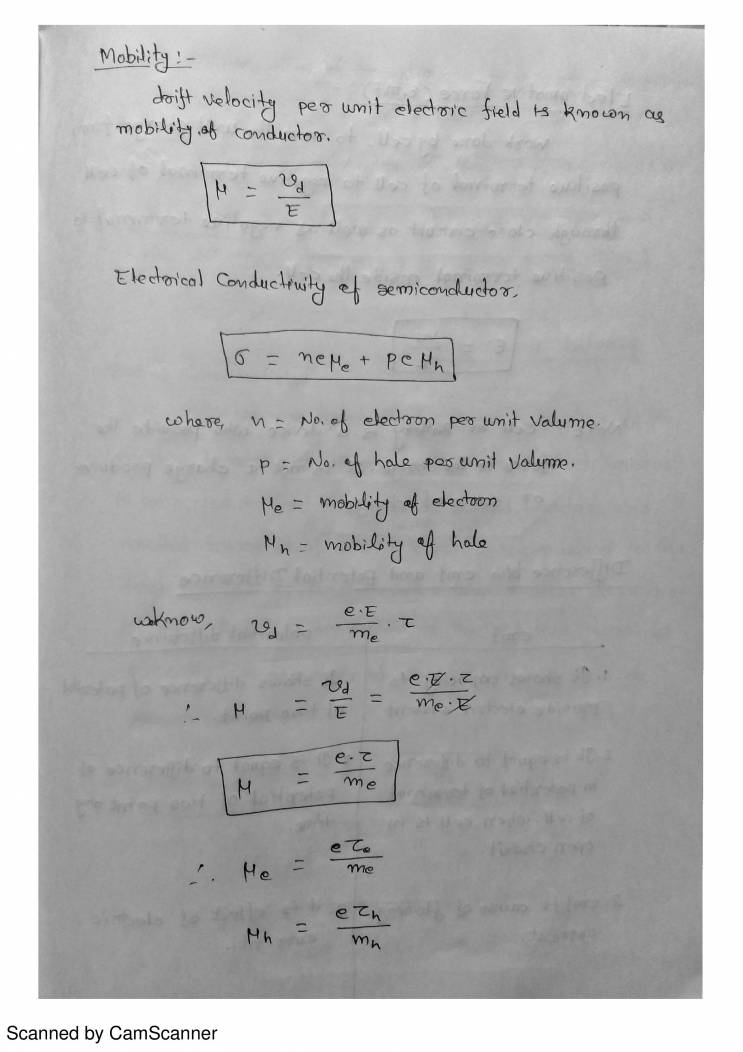 Mobility :-
drift velocity per unit electric field is known as
mobility of conductor.
μ = v_d / E
Electrical Conductivity of semiconductor.
σ = neμ_e + peμ_h
where, n = No. of electron per unit Valume.
p = No. of hale per unit Valume.
μ_e = mobility of electron
μ_h = mobility of hale
weknow, v_d = e·E / m_e · τ
∴ μ = v_d / E = e·E·τ / m_e·E
μ = e·τ / m_e
∴ μ_e = eτ_e / m_e
μ_h = eτ_h / m_h
Scanned by CamScanner